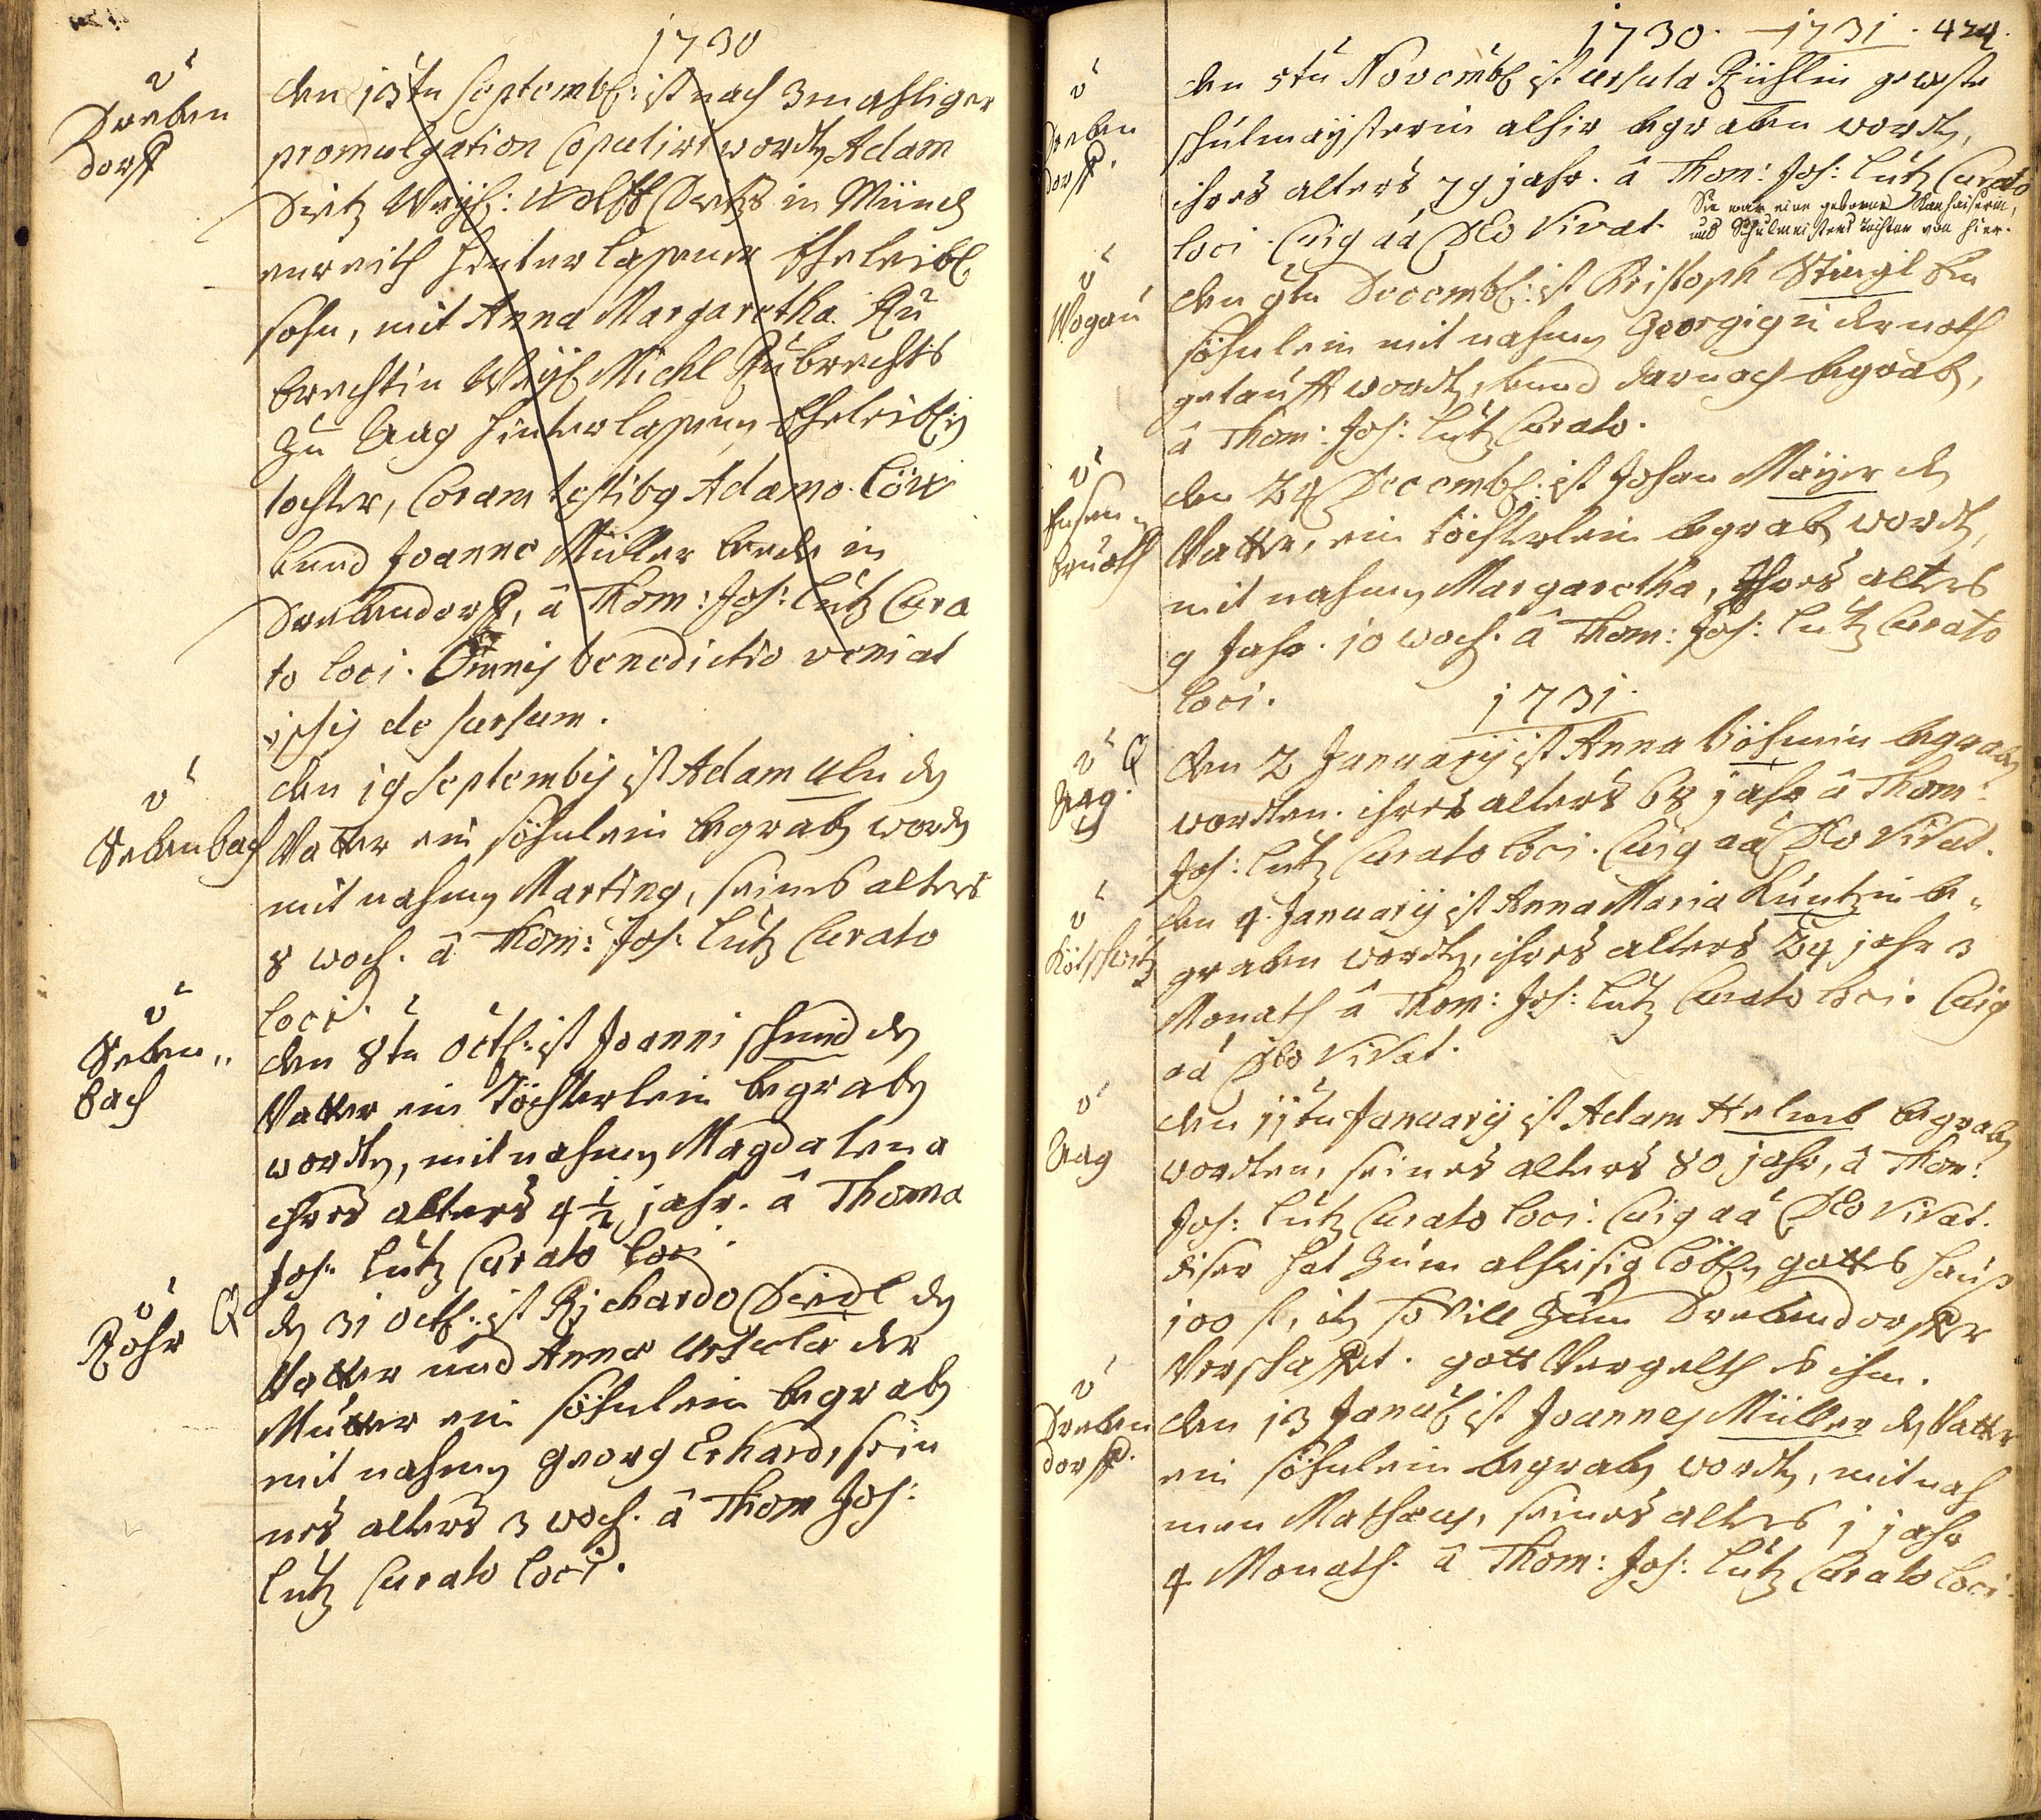 1730
Dreben
dorff
den 13ten Septemb: ist nach 3 mahliger
promulgation Copulirt wordten Adam
Dietz Weyl: Wolff Dietzs in Münch
enreith hinterlasener Eheleibl
sohn, mit Anna Margaretha Ru
brechtin Weyl Michl Rubrechts
zu Haag hinterlasenen Eheleiblich
tochter, Coram testibus Adamo Löw
und Joanne Müller beede in
Drebendorff, â Thom: Jos: Lutz Cura
to loci. Omnis benedictio veniat
ipsis de sursum.
Sebenbach
den 19 Septembris ist Adam Ulri der
Vatter ein söhnlein begraben worden
mit nahmen Martinus, seines alters
8 woch. â Thom: Jos: Lutz Curato
loci.
Seben„
bach
den 8ten Octb: ist Joanni schmid der
Vatter ein Töchterlein begraben
wordten, mit nahmen Magdalena
ihres alters 4 1/2 jahr. â Thoma
Jos: Lutz Curato loci.
Rohr
den 31 Octb: ist Richardo Seidl der
Vatter und Anna Ursula der
Mutter ein söhnlein begraben
mit nahmen georg Erhard, sein
nes alters 3 woch. â Thom Jos:
Lutz Curato loci.
1730. – 1731. 424.
Dreben
dorff.
den 5ten Novembr ist Ursula Rühlin geweste
schulmaysterin alhir begraben wordten,
ihres alters 79 jahr. â Thom: Jos: Lutz Curato
loci. Cuius aâ Deo Vivat.
Sie war eine geborne
und Schulmeisters tochter von hier.
Wogau
den 9ten Decembr: ist Kristoph Stingl ein
söhnlein mit nahmen Georgius der noth
getaufft wordten, und darnach begraben,
â Thom: Jos: Lutz Curato.
den 24 Decembr: ist Johan Mayer der
Vatter, ein töchterlein begraben wordten,
mit nahmen Margaretha, Ihres alters
9 Jahr. 10 woch. â Thom: Jos: Lutz Curato
loci.
1731.
Haag.
den 2 January ist Anna Böhmin begraben
wordten. ihres alters 68 jahr â Thom:
Jos: Lutz Curato loci. Cuius aâ Deo Vivat.
den 4. January ist Anna Maria Kuntzin be„
graben wordten, ihres alters 24 jahr 3
Monath â Thom: Jos: Lutz Curato loci. Cuius
aâ Deo Vivat.
Haag
den 11ten January ist Adam Helmb begraben
wordten, seines alters 80 jahr, â Thom:
Jos: Lutz Curato loci. Cuius aâ Deo Vivat.
diser hat zum alhisig löbl. gotts hauß
100 fl, item so vill zum Drebendorffer
Verschaffet. gott Vergelth es ihm.
Dreben
dorff.
den 13 Januar ist Joannes Müller der Vatter
ein söhnlein begraben wordten, mit nah
men Mathæus, seines alters 1 jahr
4 Monath. â Thom: Jos: Lutz Curato loci.